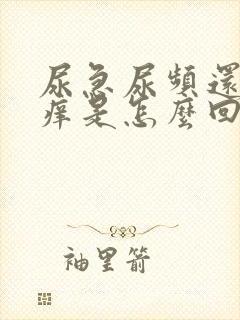 尿急尿頻還
痒是怎麼回
袖里箭